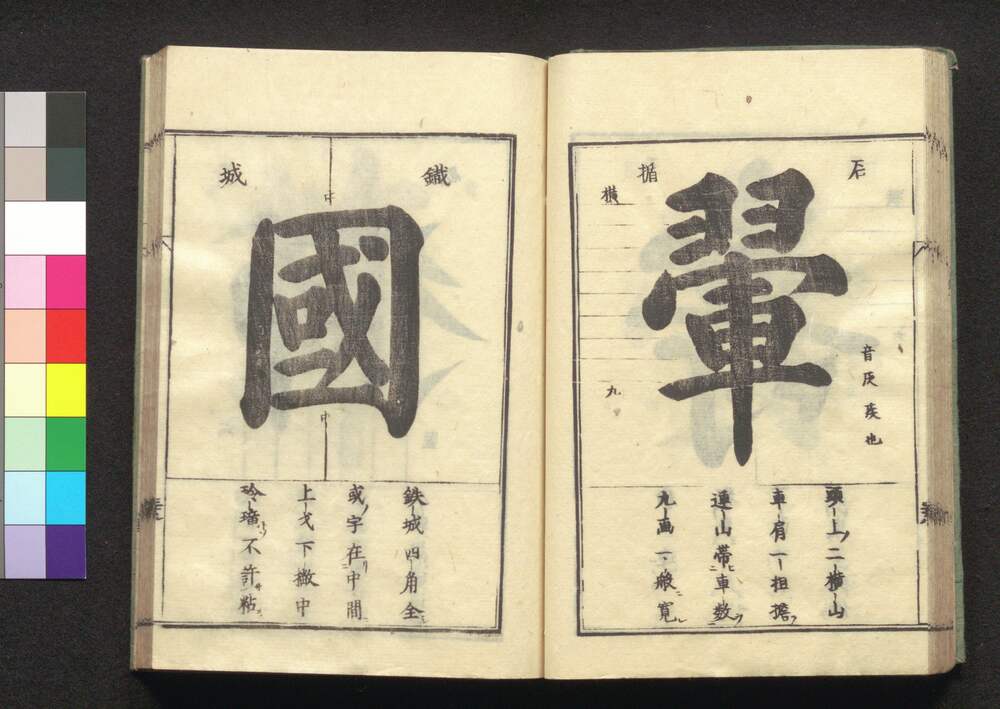 循
横
翬
九
音灰疾也
頭上二横山
車肩一担擔
連山帯車数
九画一般寛
鐵
城
中
國
中
鉄城四角全
或字在中間
上戈下撇中
玲不許粘